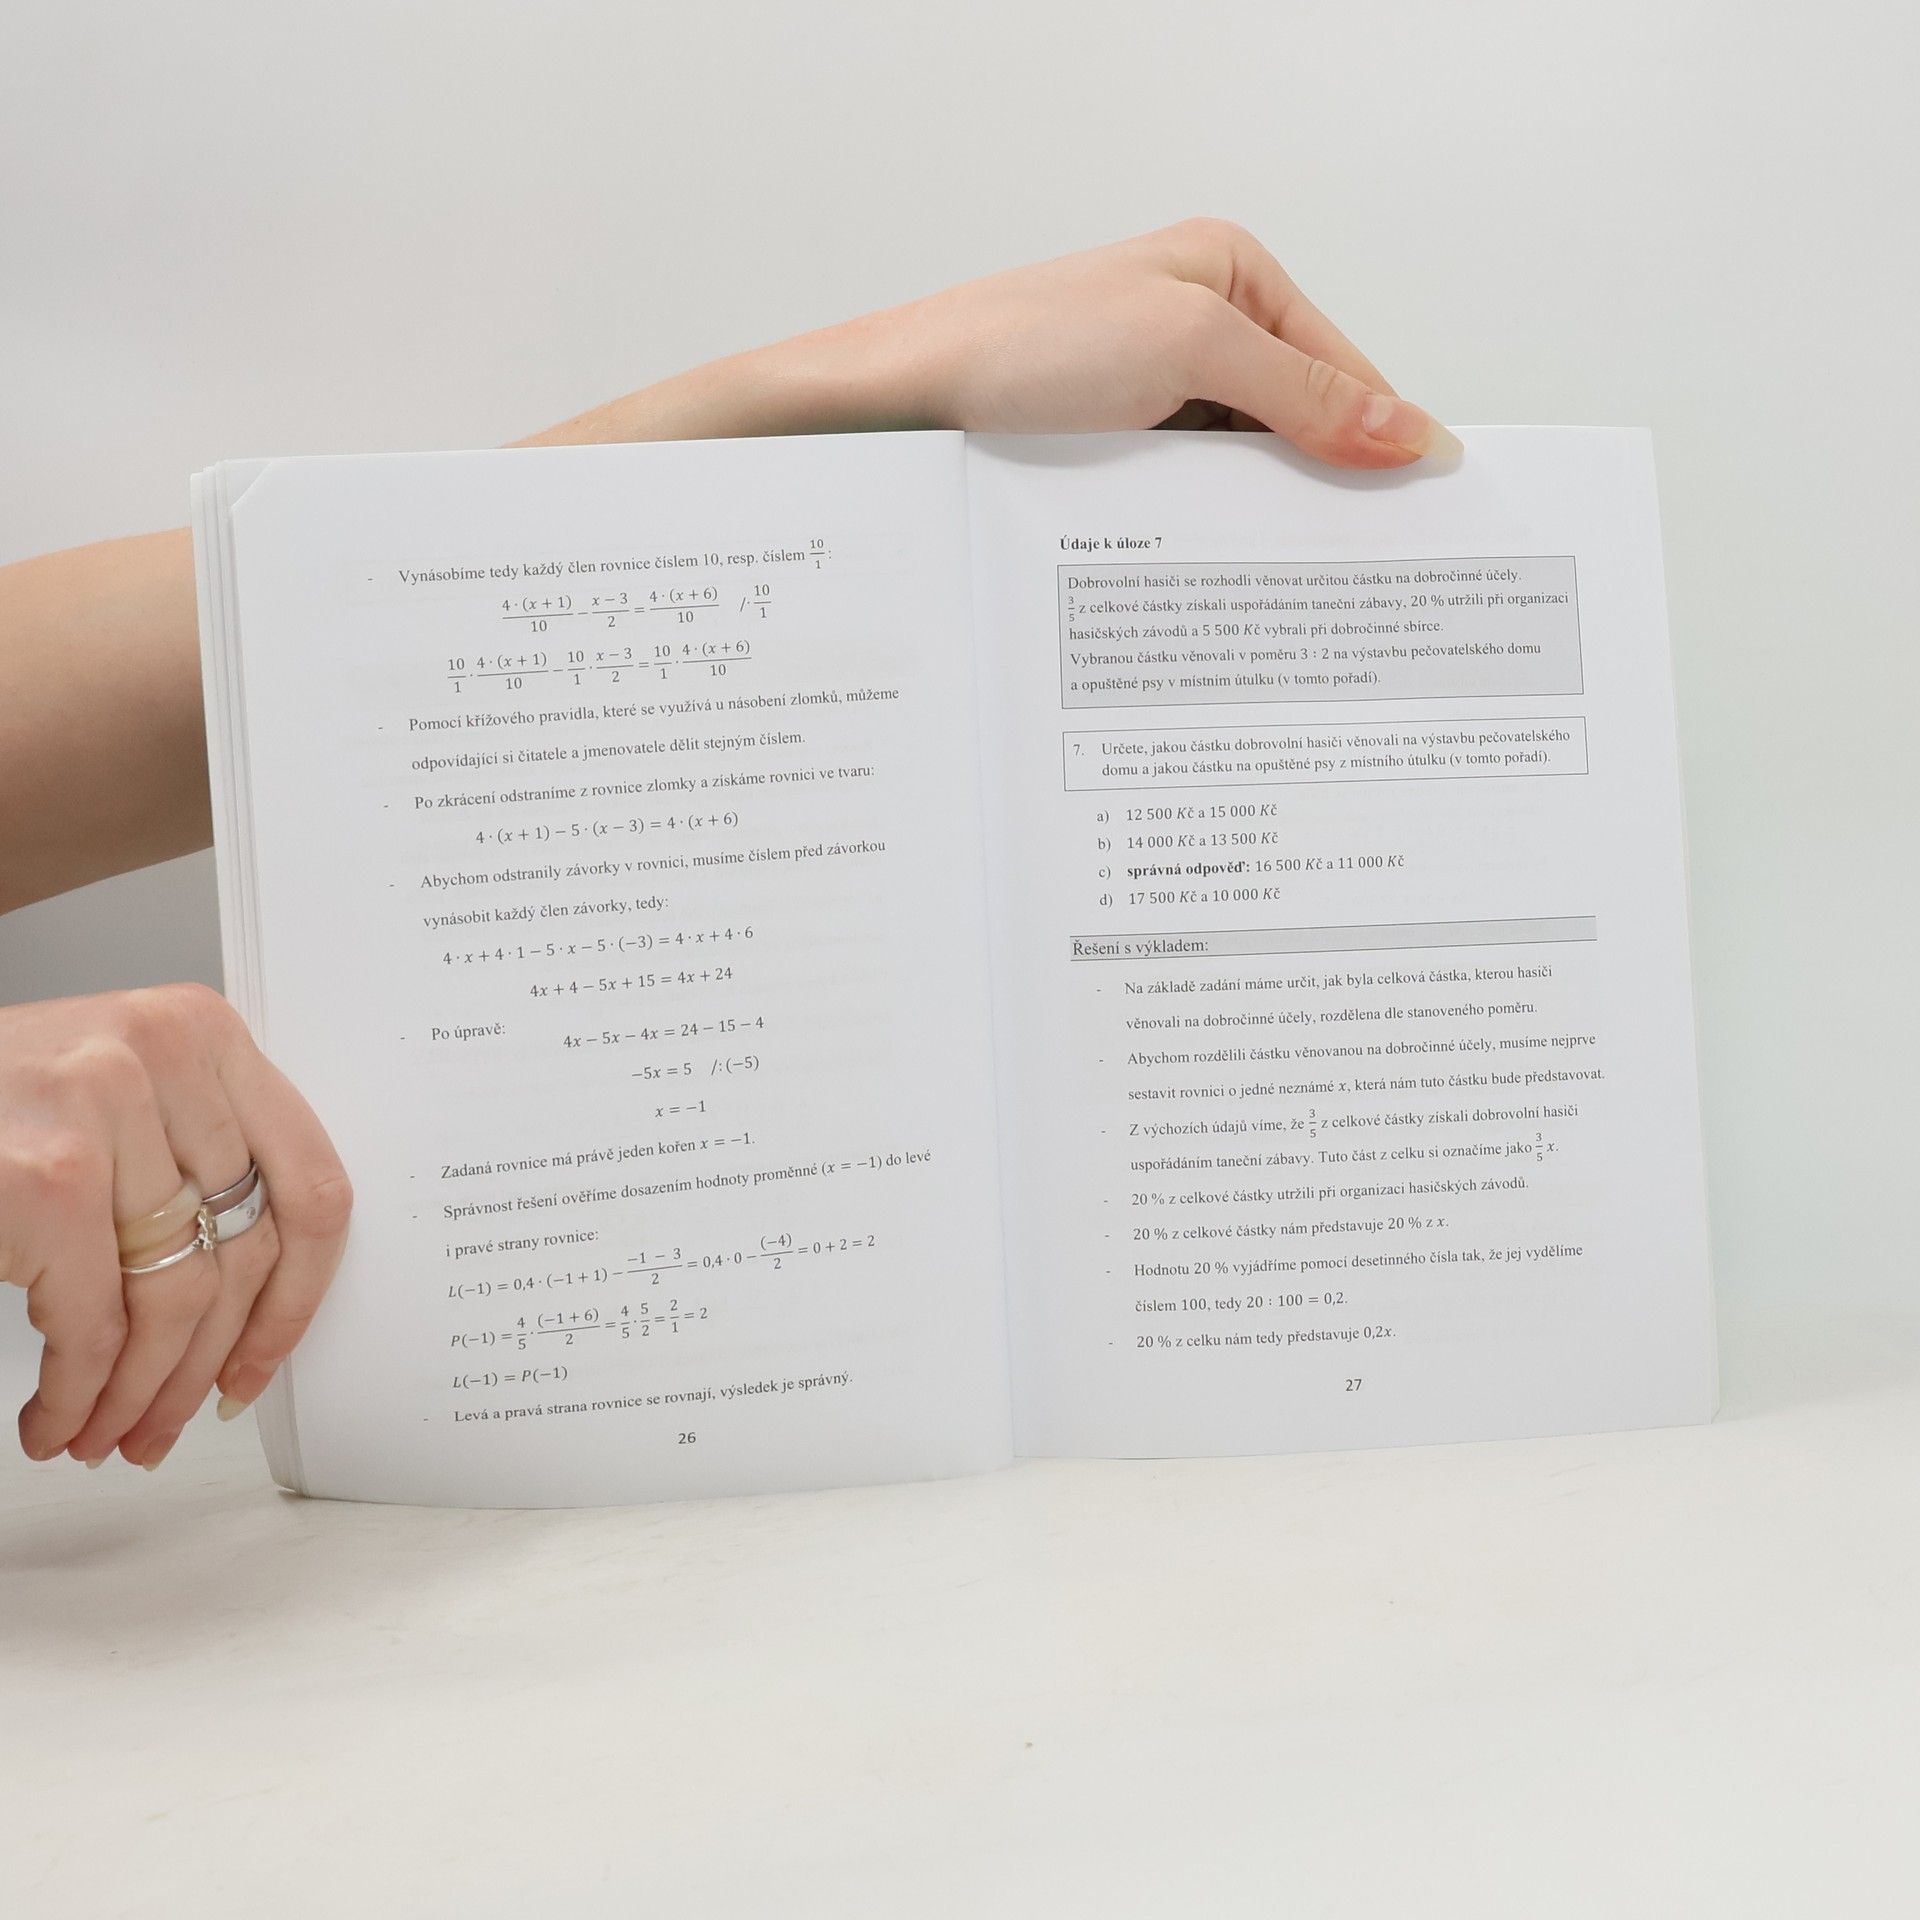 - Vynásobíme tedy každý člen rovnice číslem 10, resp. číslem 10/1:
4·(x + 1)/10 − x − 3/2 = 4·(x + 6)/10 /·10/1
10/1·4·(x + 1)/10 − 10/1·x − 3/2 = 10/1·4·(x + 6)/10
- Pomocí křížového pravidla, které se využívá u násobení zlomků, můžeme
odpovídající si čitatele a jmenovatele dělit stejným číslem.
- Po zkrácení odstraníme z rovnice zlomky a získáme rovnici ve tvaru:
4·(x + 1) − 5·(x − 3) = 4·(x + 6)
- Abychom odstranily závorky v rovnici, musíme číslem před závorkou
vynásobit každý člen závorky, tedy:
4·x + 4·1 − 5·x − 5·(−3) = 4·x + 4·6
4x + 4 − 5x + 15 = 4x + 24
- Po úpravě:
4x − 5x − 4x = 24 − 15 − 4
−5x = 5 /:(−5)
x = −1
- Zadaná rovnice má právě jeden kořen x = −1.
- Správnost řešení ověříme dosazením hodnoty proměnné (x = −1) do levé
i pravé strany rovnice:
L(−1) = 0,4·(−1 + 1) − −1 − 3/2 = 0,4·0 − (−4)/2 = 0 + 2 = 2
P(−1) = 4/5·(−1 + 6)/2 = 4/5·5/2 = 2/1 = 2
L(−1) = P(−1)
- Levá a pravá strana rovnice se rovnají, výsledek je správný.
26
Údaje k úloze 7
Dobrovolní hasiči se rozhodli věnovat určitou částku na dobročinné účely.
3/5 z celkové částky získali uspořádáním taneční zábavy, 20 % utržili při organizaci
hasičských závodů a 5 500 Kč vybrali při dobročinné sbírce.
Vybranou částku věnovali v poměru 3 : 2 na výstavbu pečovatelského domu
a opuštěné psy v místním útulku (v tomto pořadí).
7. Určete, jakou částku dobrovolní hasiči věnovali na výstavbu pečovatelského
domu a jakou částku na opuštěné psy z místního útulku (v tomto pořadí).
a) 12 500 Kč a 15 000 Kč
b) 14 000 Kč a 13 500 Kč
c) správná odpověď: 16 500 Kč a 11 000 Kč
d) 17 500 Kč a 10 000 Kč
Řešení s výkladem:
- Na základě zadání máme určit, jak byla celková částka, kterou hasiči
věnovali na dobročinné účely, rozdělena dle stanoveného poměru.
- Abychom rozdělili částku věnovanou na dobročinné účely, musíme nejprve
sestavit rovnici o jedné neznámé x, která nám tuto částku bude představovat.
- Z výchozích údajů víme, že 3/5 z celkové částky získali dobrovolní hasiči
uspořádáním taneční zábavy. Tuto část z celku si označíme jako 3/5 x.
- 20 % z celkové částky utržili při organizaci hasičských závodů.
- 20 % z celkové částky nám představuje 20 % z x.
- Hodnotu 20 % vyjádříme pomocí desetinného čísla tak, že jej vydělíme
číslem 100, tedy 20 : 100 = 0,2.
- 20 % z celku nám tedy představuje 0,2x.
27